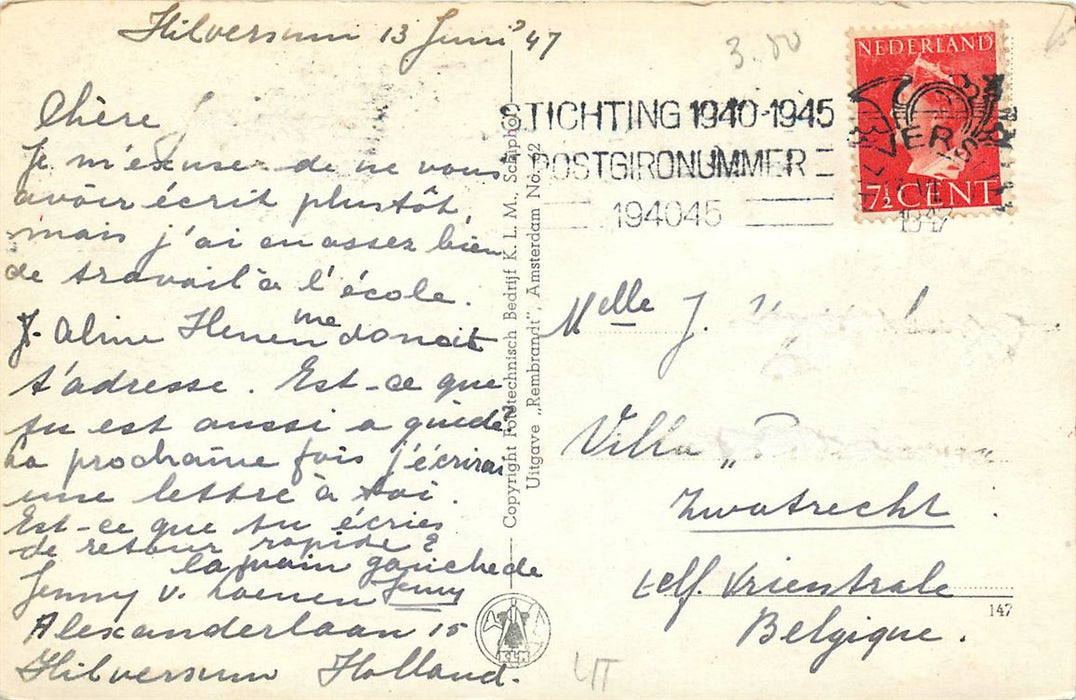 Hilversum 13 Juni '47
Chère
Je m'excuse de ne vous
avoir écrit plustôt,
mais j'ai eu assez bien
de travail à l'école.
Aline me donait
t'adresse. Est-ce que
tu est aussi a guide?
La prochaine fois j'écrirai
une lettre à toi.
Est-ce que tu écries
de retour rapide?
la main gauche de
Jenny v. Loenen Jenny
Alexanderlaan 15
Hilversum Holland.
Copyright Fototechnisch Bedrijf K. L. M., Schiphol
Uitgave „Rembrandt", Amsterdam No.
3.00
STICHTING 1940-1945
POSTGIRONUMMER
194045
NEDERLAND
7½ CENT
VII
1947
Melle J.
Villa „
Zwatrecht.
Belgique.
147
KLM